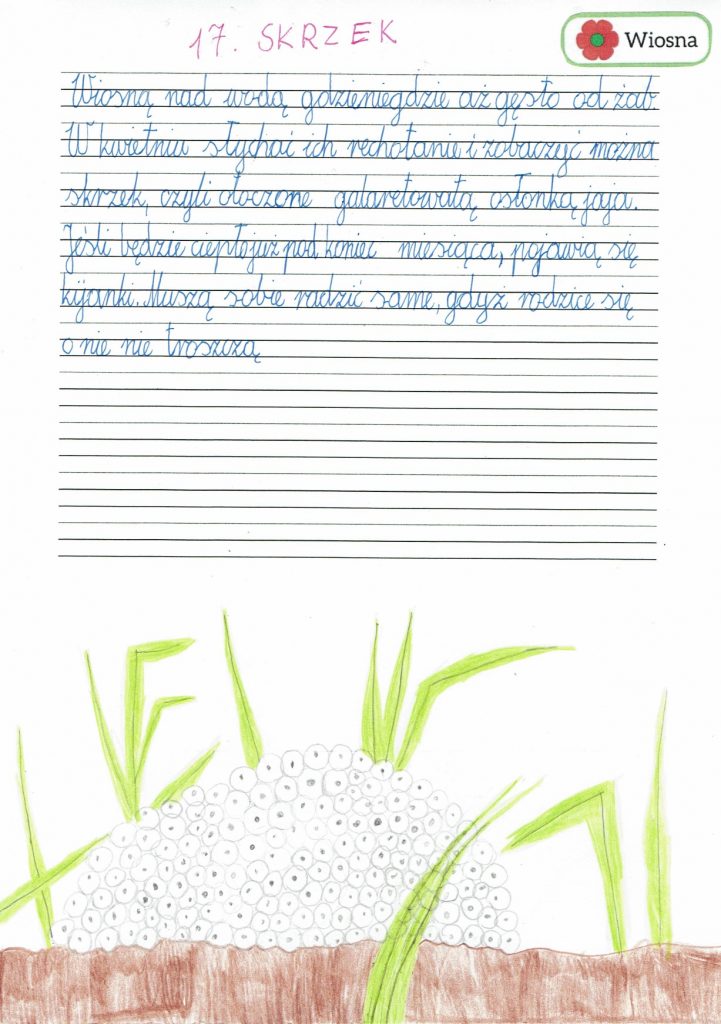 17. SKRZEK
Wiosna
Wiosną nad wodą gdzieniegdzie aż gęsto od żab
W kwietniu słychać ich rechotanie i zobaczyć można
skrzek, czyli otoczone galaretowatą osłonką jaja.
Jeśli będzie ciepło już pod koniec miesiąca, pojawią się
kijanki. Muszą sobie radzić same, gdyż rodzice się
o nie nie troszczą